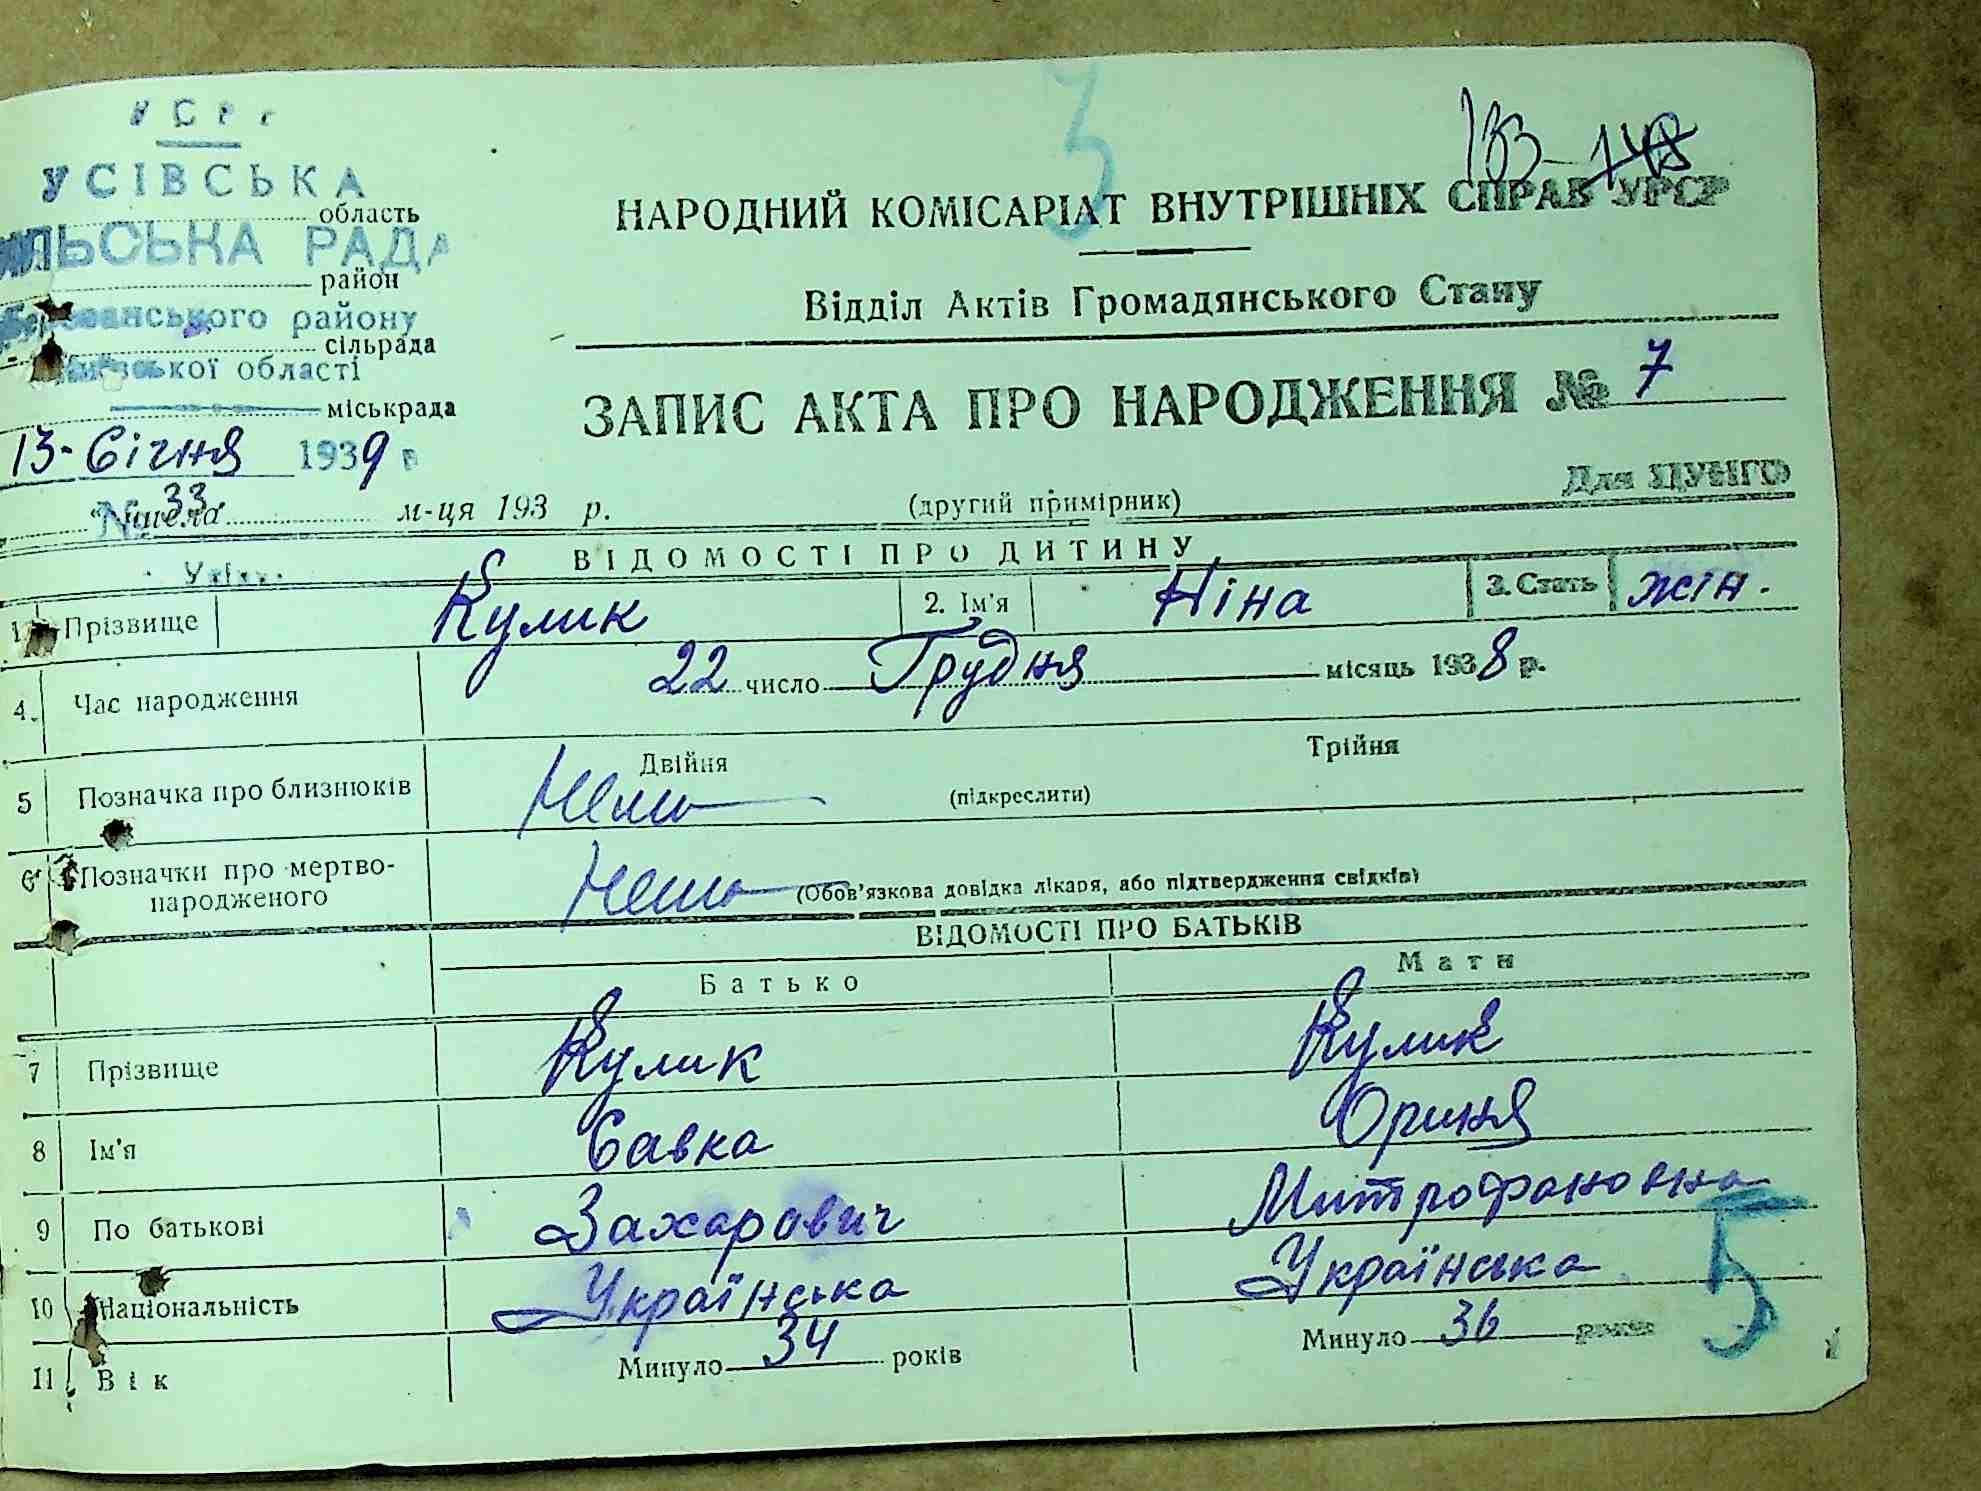 УСІВСЬКА
область
СІЛЬСЬКА РАДА
район
Березанського району
сільрада
Київської області
міськрада
13-Січня 1939 р
33
м-ця 193 р.
3
183 148
НАРОДНИЙ КОМІСАРІАТ ВНУТРІШНІХ СПРАВ УРСР
Відділ Актів Громадянського Стану
ЗАПИС АКТА ПРО НАРОДЖЕННЯ № 7
(другий примірник)
Для ЦУНГО
ВІДОМОСТІ ПРО ДИТИНУ
1 Прізвище Кулик 2. Ім'я Ніна 3. Стать жін.
4. Час народження 22 число Грудня місяць 1938 р.
5 Позначка про близнюків Двійня Трійня
Нема (підкреслити)
6 Позначки про мертво-
народженого Нема (Обов'язкова довідка лікаря, або підтвердження свідків)
ВІДОМОСТІ ПРО БАТЬКІВ
Батько Мати
7 Прізвище Кулик Кулик
8 Ім'я Савка Ориня
9 По батькові Захарович Митрофановна
10 Національність Українська Українська
5
11 Вік Минуло 34 років Минуло 36 років